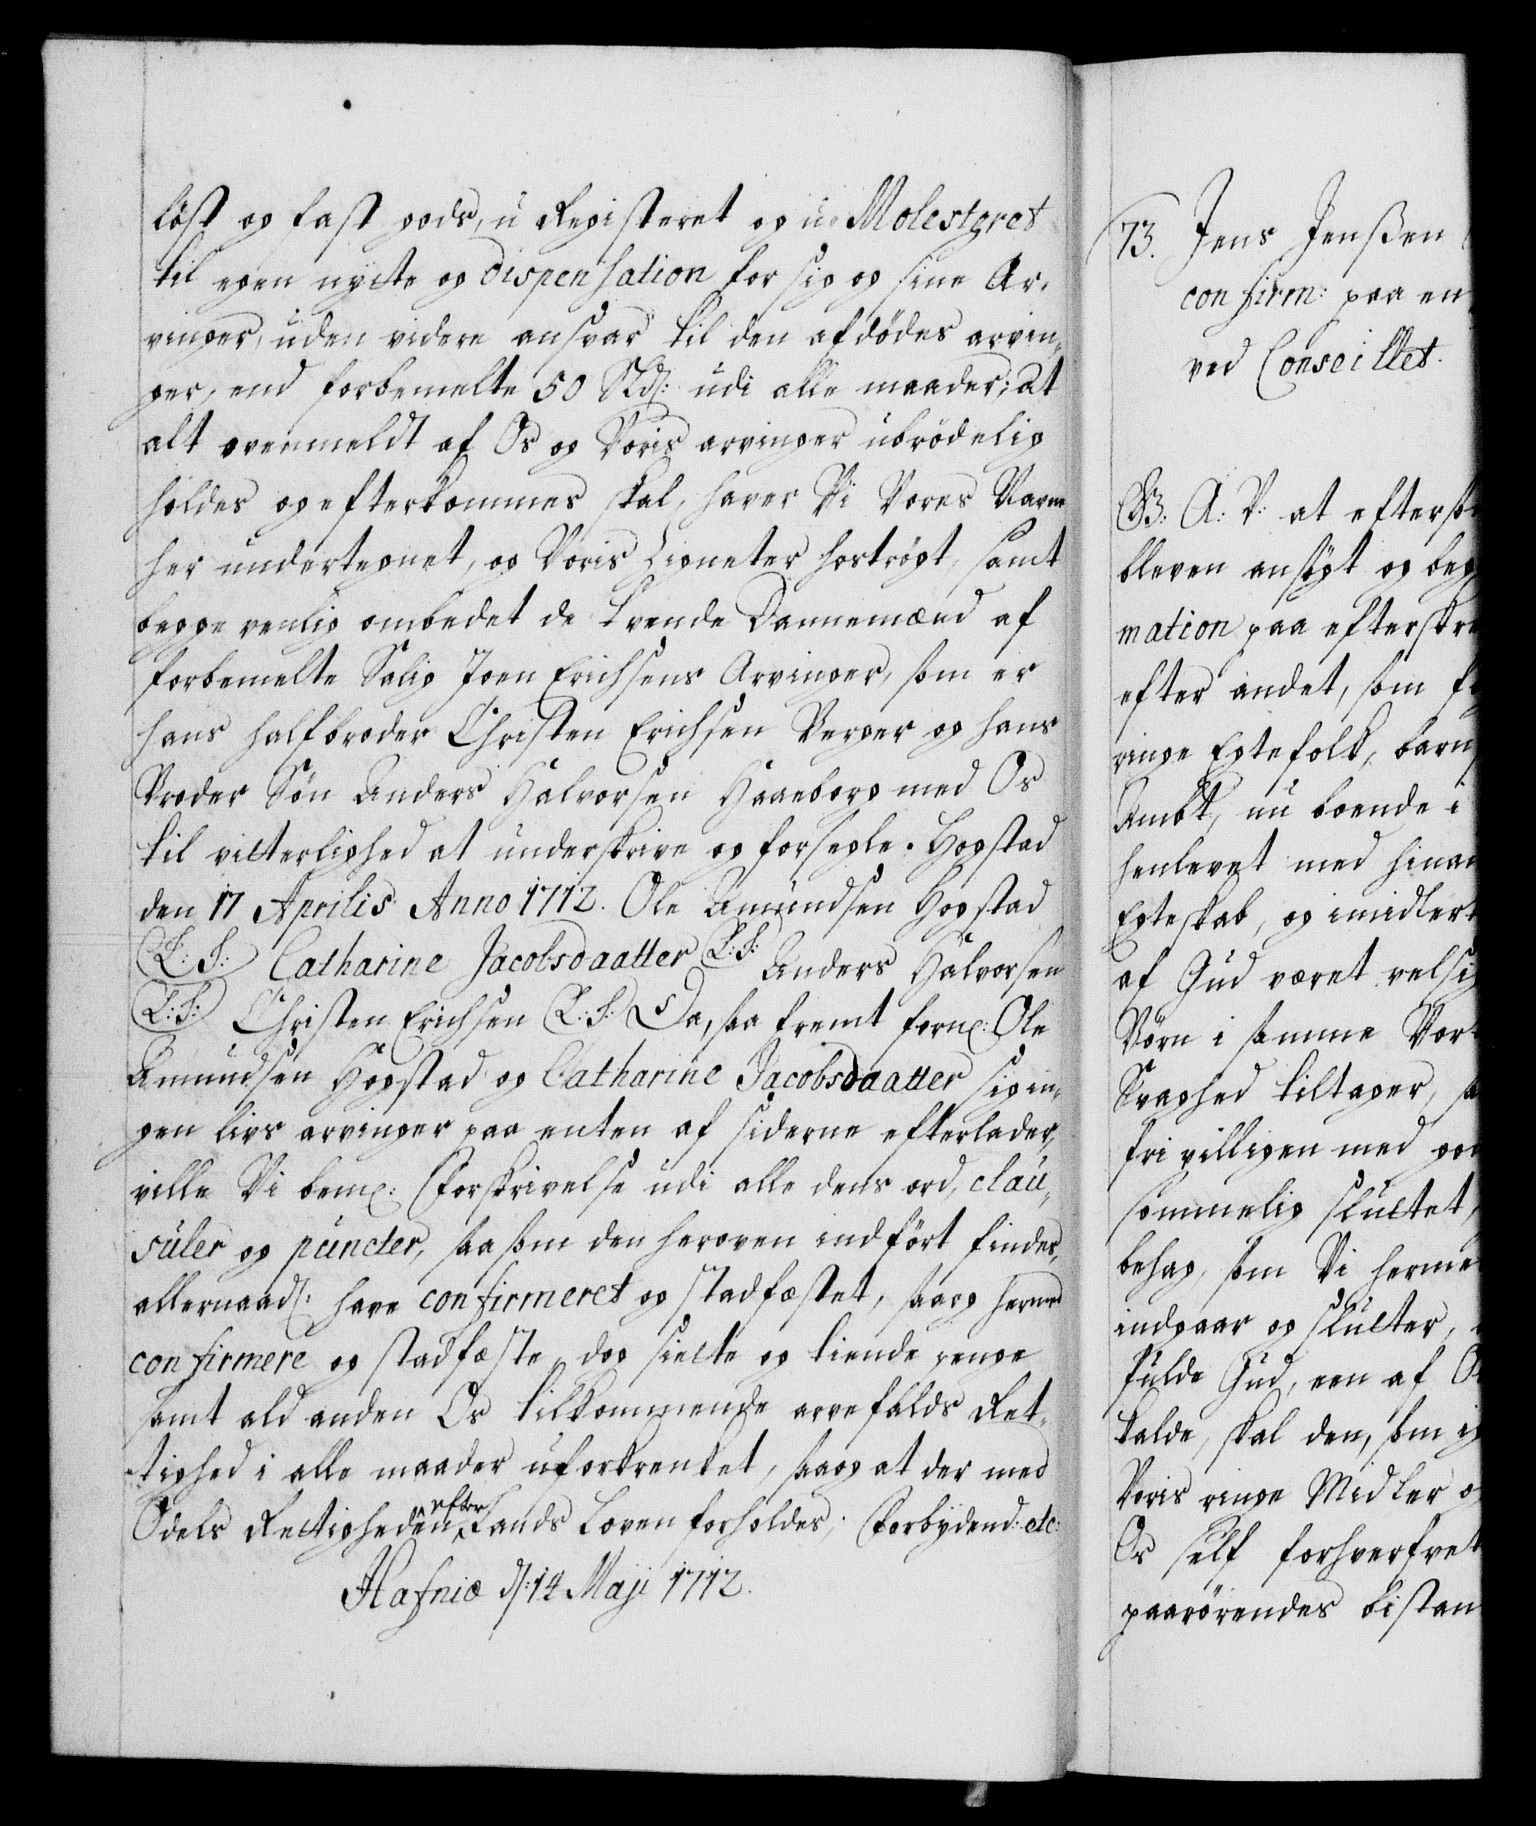 löst og fast gods, u Registeret og u Molesteret
til egen nytte og dispensation for sig og sine Ar-
vinger, uden videre ansvar til den afdödes arvin-
ger, end forbemelte 50 Rdr: udi alle maader; At
alt ovenmeldt af Os og Voris arvinger ubrödelig
holdes og efterkommes skal, haver Vi Vores Navne
her undertegnet, og Voris Signeter hoströgt, samt
begge venlig ombedet de tvende Dannemænd af
forbemelte Salig Joen Erichsens Arvinger, som er
hans halfbroder Christen Erichsen Berger og hans
Broder Sön Anders Halvorsen Haaeborg med Os
til vitterlighed at underskrive og forsegle. Hogstad
den 17 Aprilis Anno 1712. Ole Amundsen Hogstad
(L: S:) Catharine Jacobsdaatter (L: S:) Anders Halvorsen
(L: S:) Christen Erichsen (L: S:) Da, saa fremt forne: Ole
Amundsen Hogstad og Catharine Jacobsdaatter sig in-
gen livs arvinger paa enten af siderne efterlader,
ville Vi beme: Forskrivelse udi alle dens ord, clau-
suler og puncter, saa som den heroven indfört findes,
allernaad: have confirmeret og stadfæstet, saa og hermed
confirmere og stadfæste, dog siette og tiende penge
samt ald anden Os tilkommende arvefalds Ret-
tighed i alle maader uforkrenket, saa og at der med
Odels Rettigheden efter Lands Loven forholdes; Forbydend: etc:
Hafniæ d: 14 Maji 1712.
73. Jens Jenßen
confirm: paa en
ved Conseillet.
G: A: V: at eftersk
bleven ansögt og beg
mation paa efterskre
efter andet, som f
ringe Egtefolk, barn
Ambt, nu boende i
henlevet med hinan
Egteskab, og imidlert
af Gud været velsig
Börn i samme Vort
Svaghed tiltager, sa
frivilligen med go
sommelig sluttet,
behag, som Vi herme
indgaar og slutter,
fulde Gud, een af O
kalde, skal den, som ig
Voris ringe Midler o
Os self forhverfvet
paarörendes bistan